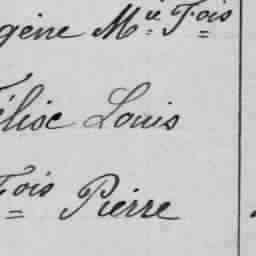 gène Mie Fois
élise Louis
Fois Pierre